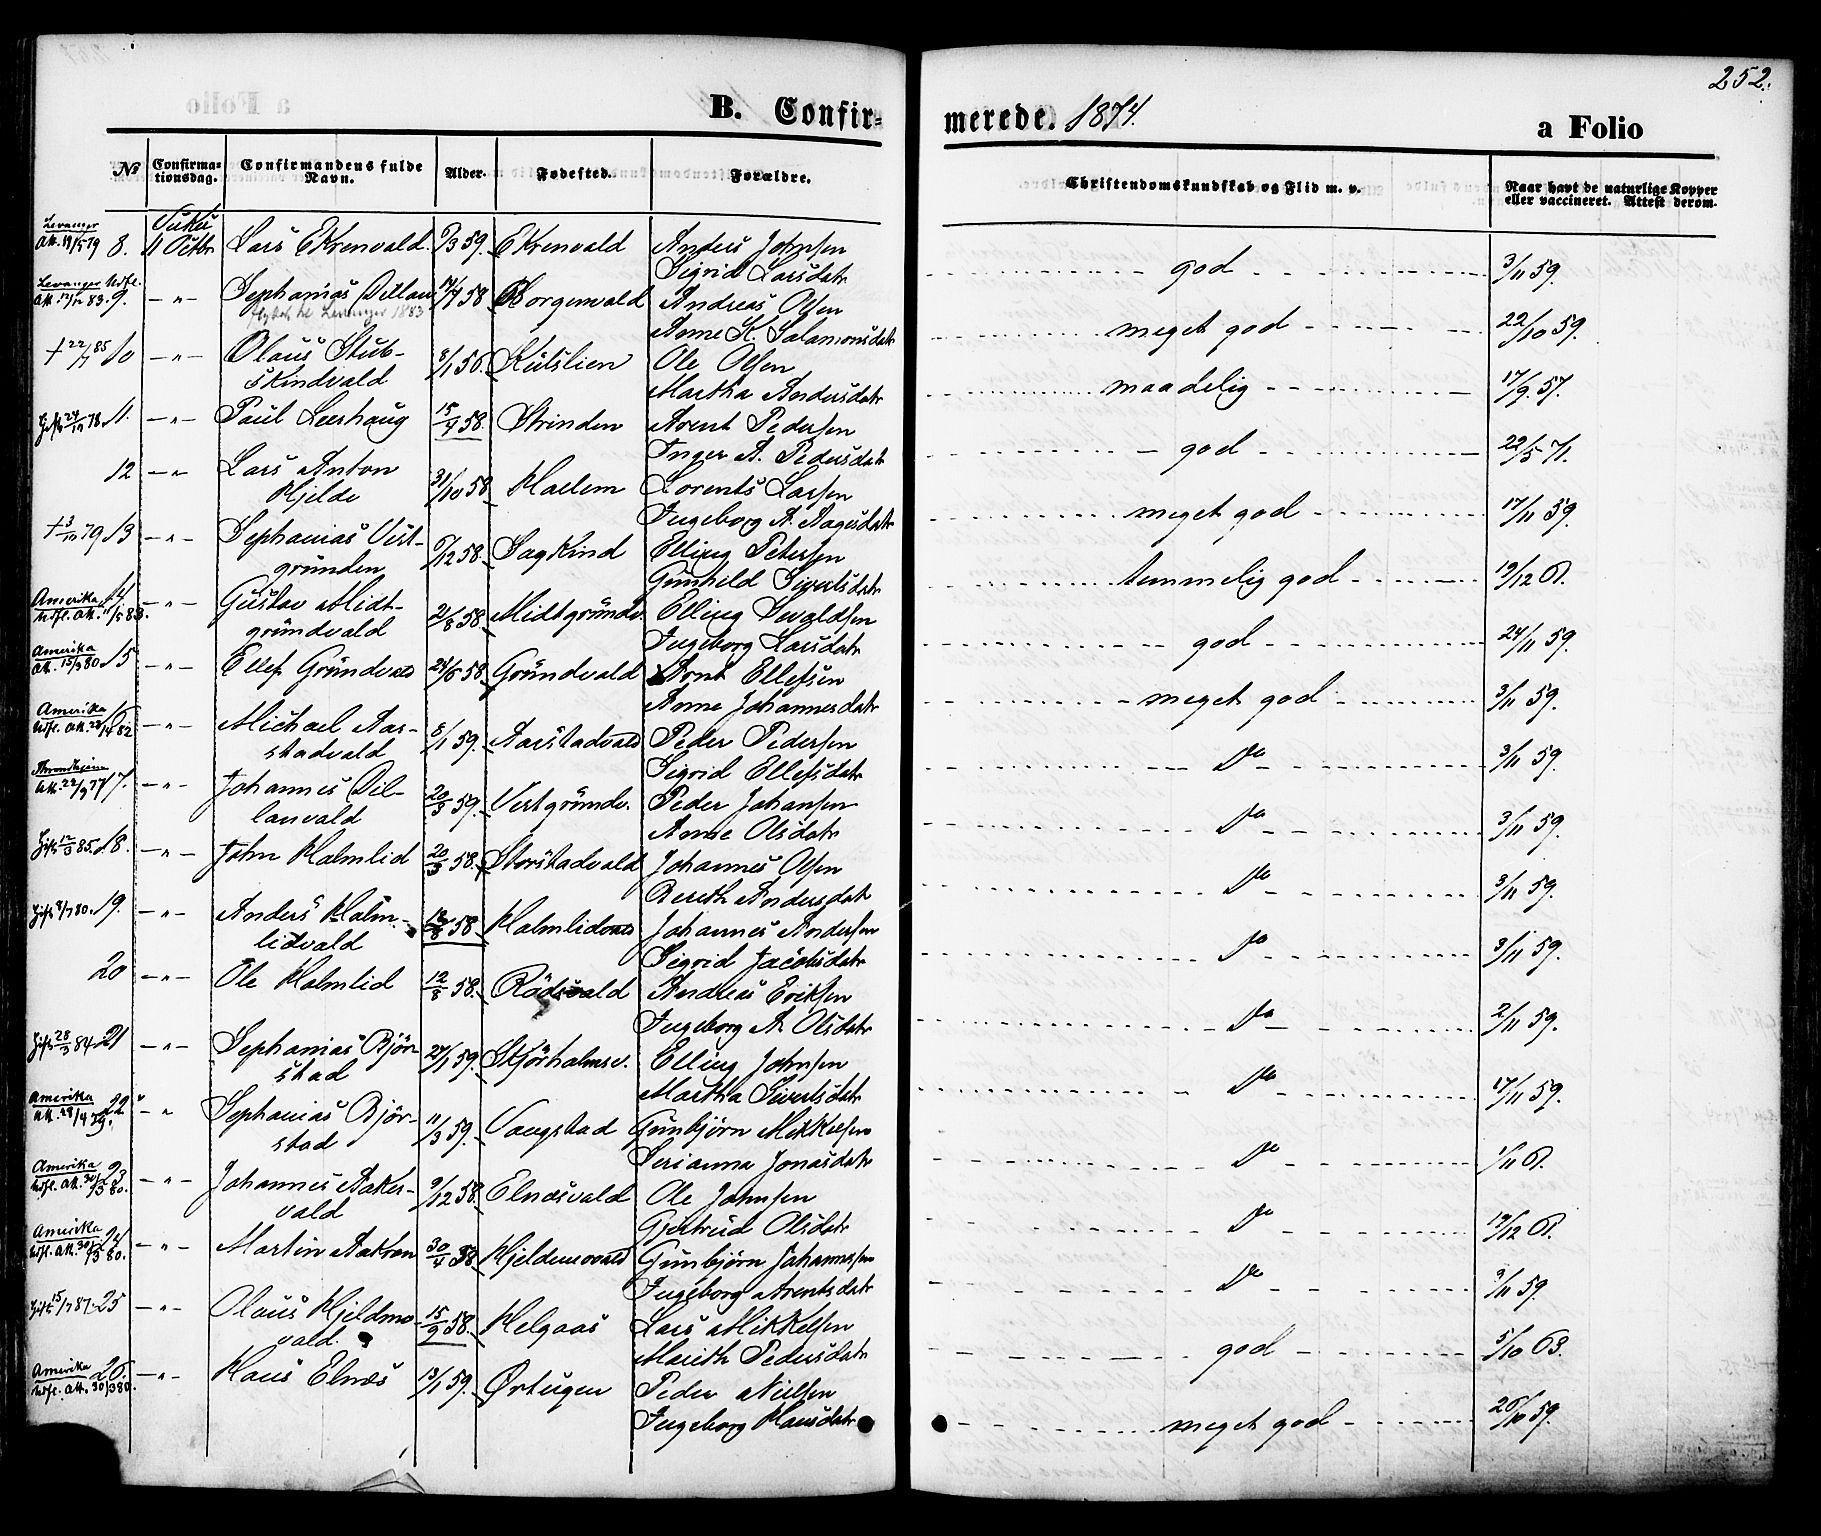 252.
B. Confir=
merede. 1874.
a Folio
№
Confirma=
tionsdag.
Confirmandens fulde
Navn.
Alder.
Fødested.
Forældre.
Christendomskundskab og Flid m. v.
Naar havt de naturlige Kopper
eller vaccineret. Attest derom.
Levanger Att. 19/5 79 8. Vuku 11 Octbr Lars Ekrenvald. 59. Ekrenvald Anders Johnsen god 3/11 59.
Sigrid Larsdatr
Levanger Udfl. Att. 83. 9. — " — Sephanias Dillan 58 Borgenvald Andreas Olsen meget god 22/10 59.
flyttet til Levanger 1883 Anne K. Salamonsdatr
† 22/7 85 10 — " — Olaus Stub- 8/1 56. Kulslien Ole Olsen maadelig 17/9 57.
skindvald Martha Andersdatr
Gift 78. 11. — " — Paul Leerhaug 15/4 58. Strinden Arent Pedersen god 22/5 71.
Inger A. Pedersdatr
12 — " — Lars Anton 31/10 58 Haelem Lorents Larsen meget god 17/11 59.
Hjelde Ingeborg A. Aagesdatr
† 79 13 — " — Sephanias Vest- 12 58. Sagkind Elling Petersen temmelig god 19/12 61.
grunden Gunhild Sivertsdatr
Amerika Udfl. Att. 83. 14 — " — Gustav Midt- 21/8 58. Midtgrundv. Elling Sevaldsen god 24/11 59.
grundvald Ingeborg Larsdatr
Amerika Att. 15/3 80 15 — " — Ellef Grundvald 24/6 58 Grundvald Arnt Ellefsen meget god 3/11 59.
Anne Johannesdatr
Amerika Udfl. Att. 22/4 82 16 — " — Michael Aar- 8/1 59. Aarstadvald Peder Pedersen Do 3/11 59.
stadvald Sigrid Ellefsdatr
Throndhjem Att. 22/9 77 17. — " — Johannes Dil- 20/3 59. Vestgrundv. Peder Johansen Do 3/11 59.
lanvald Anne Olsdatr
Gift 12/3 85. 18. — " — John Halmlid 20/3 58. Storstadvald Johannes Olsen Do 3/11 59.
Bereth Andersdatr
Gift 8/7 80. 19. — " — Anders Halm- 12/8 58. Halmlidvald Johannes Andersen Do 3/11 59.
lidvald Sigrid Jacobsdatr
20 — " — Ole Halmlid 12/8 58. Rödsvald Andreas Eriksen Do 2/11 59.
Ingeborg A. Olsdatr
Gift 28/3 84. 21 — " — Sephanias Björ- 27/1 59. Skjörholmsv. Elling Johnsen Do 17/11 59.
stad Martha Sivertsdatr
Amerika Att. 28/4 79. 22 — " Sephanias Björ- 11/3 59. Vangstad Gunbjörn Mikkelsen Do 1/11 61.
stad Serianna Jonasdatr
Amerika Udfl. Att. 30/3 80. 23 — " — Johannes Aaker- 9/12 58. Elnæsvald Ole Johnsen Do 19/12 61.
vald Gjertrud Olsdatr
Amerika Udfl. Att. 30/3 80. 24 — " — Martin Aakran 30/4 58 Hjeldemovald Gunbjörn Johannesen Do 9/11 59.
Ingeborg Arentsdatr
Gift 15/7 87. 25 — " — Olaus Hjeldmo 15/9 58. Helgaas Lars Mikkelsen god 5/10 63.
vald. Mareth Pedersdatr
Amerika Udfl. Att. 30/3 80. 26. — " — Klaus Elnæs 13/1 59. Ørtugen Peder Nilsen meget god 26/10 59.
Ingeborg Klausdatr